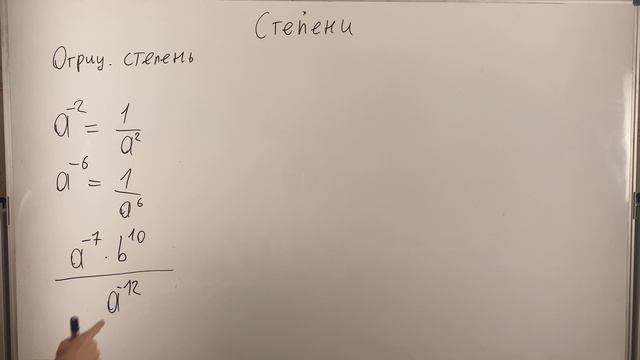 Степени
Отриц. степень
a⁻² = 1/a²
a⁻⁶ = 1/a⁶
a⁻⁷ · b¹⁰ / a⁻¹²